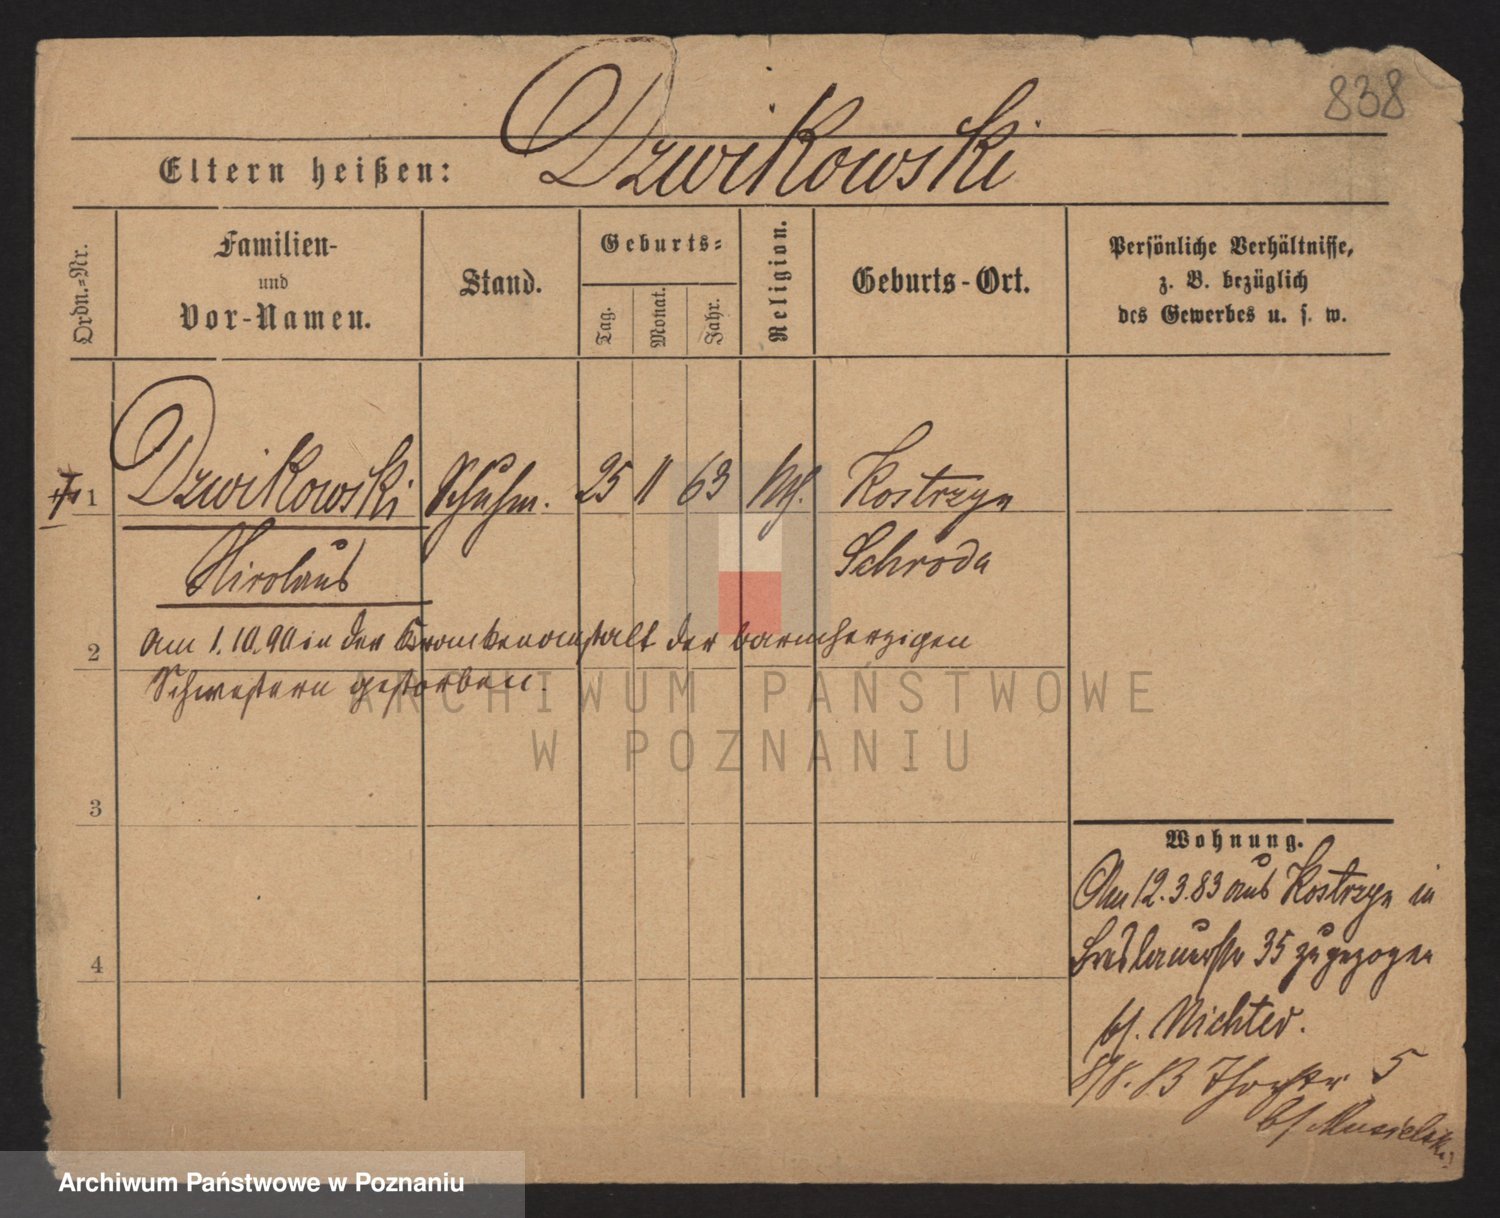 838
Dzwikowski
Eltern heißen:
Ordn.=Nr.
Familien-
und
Vor-Namen.
Stand.
Geburts=
Tag.
Monat.
Jahr.
Religion.
Geburts-Ort.
Persönliche Verhältnisse,
z. B. bezüglich
des Gewerbes u. s. w.
1 Dzwikowski Schuhm. 25 11 63 kth. Kostrzyn
Nicolaus Schroda
2 Am 1.10.90 in der Krankenanstalt der barmherzigen
Schwestern gestorben.
ARCHIWUM PAŃSTWOWE
W POZNANIU
3
4
Wohnung.
Am 12.3.83 aus Kostrzyn in
Breslauerstr 35 zugezogen
bf. Richter.
83 5
bf Musielski
Archiwum Państwowe w Poznaniu